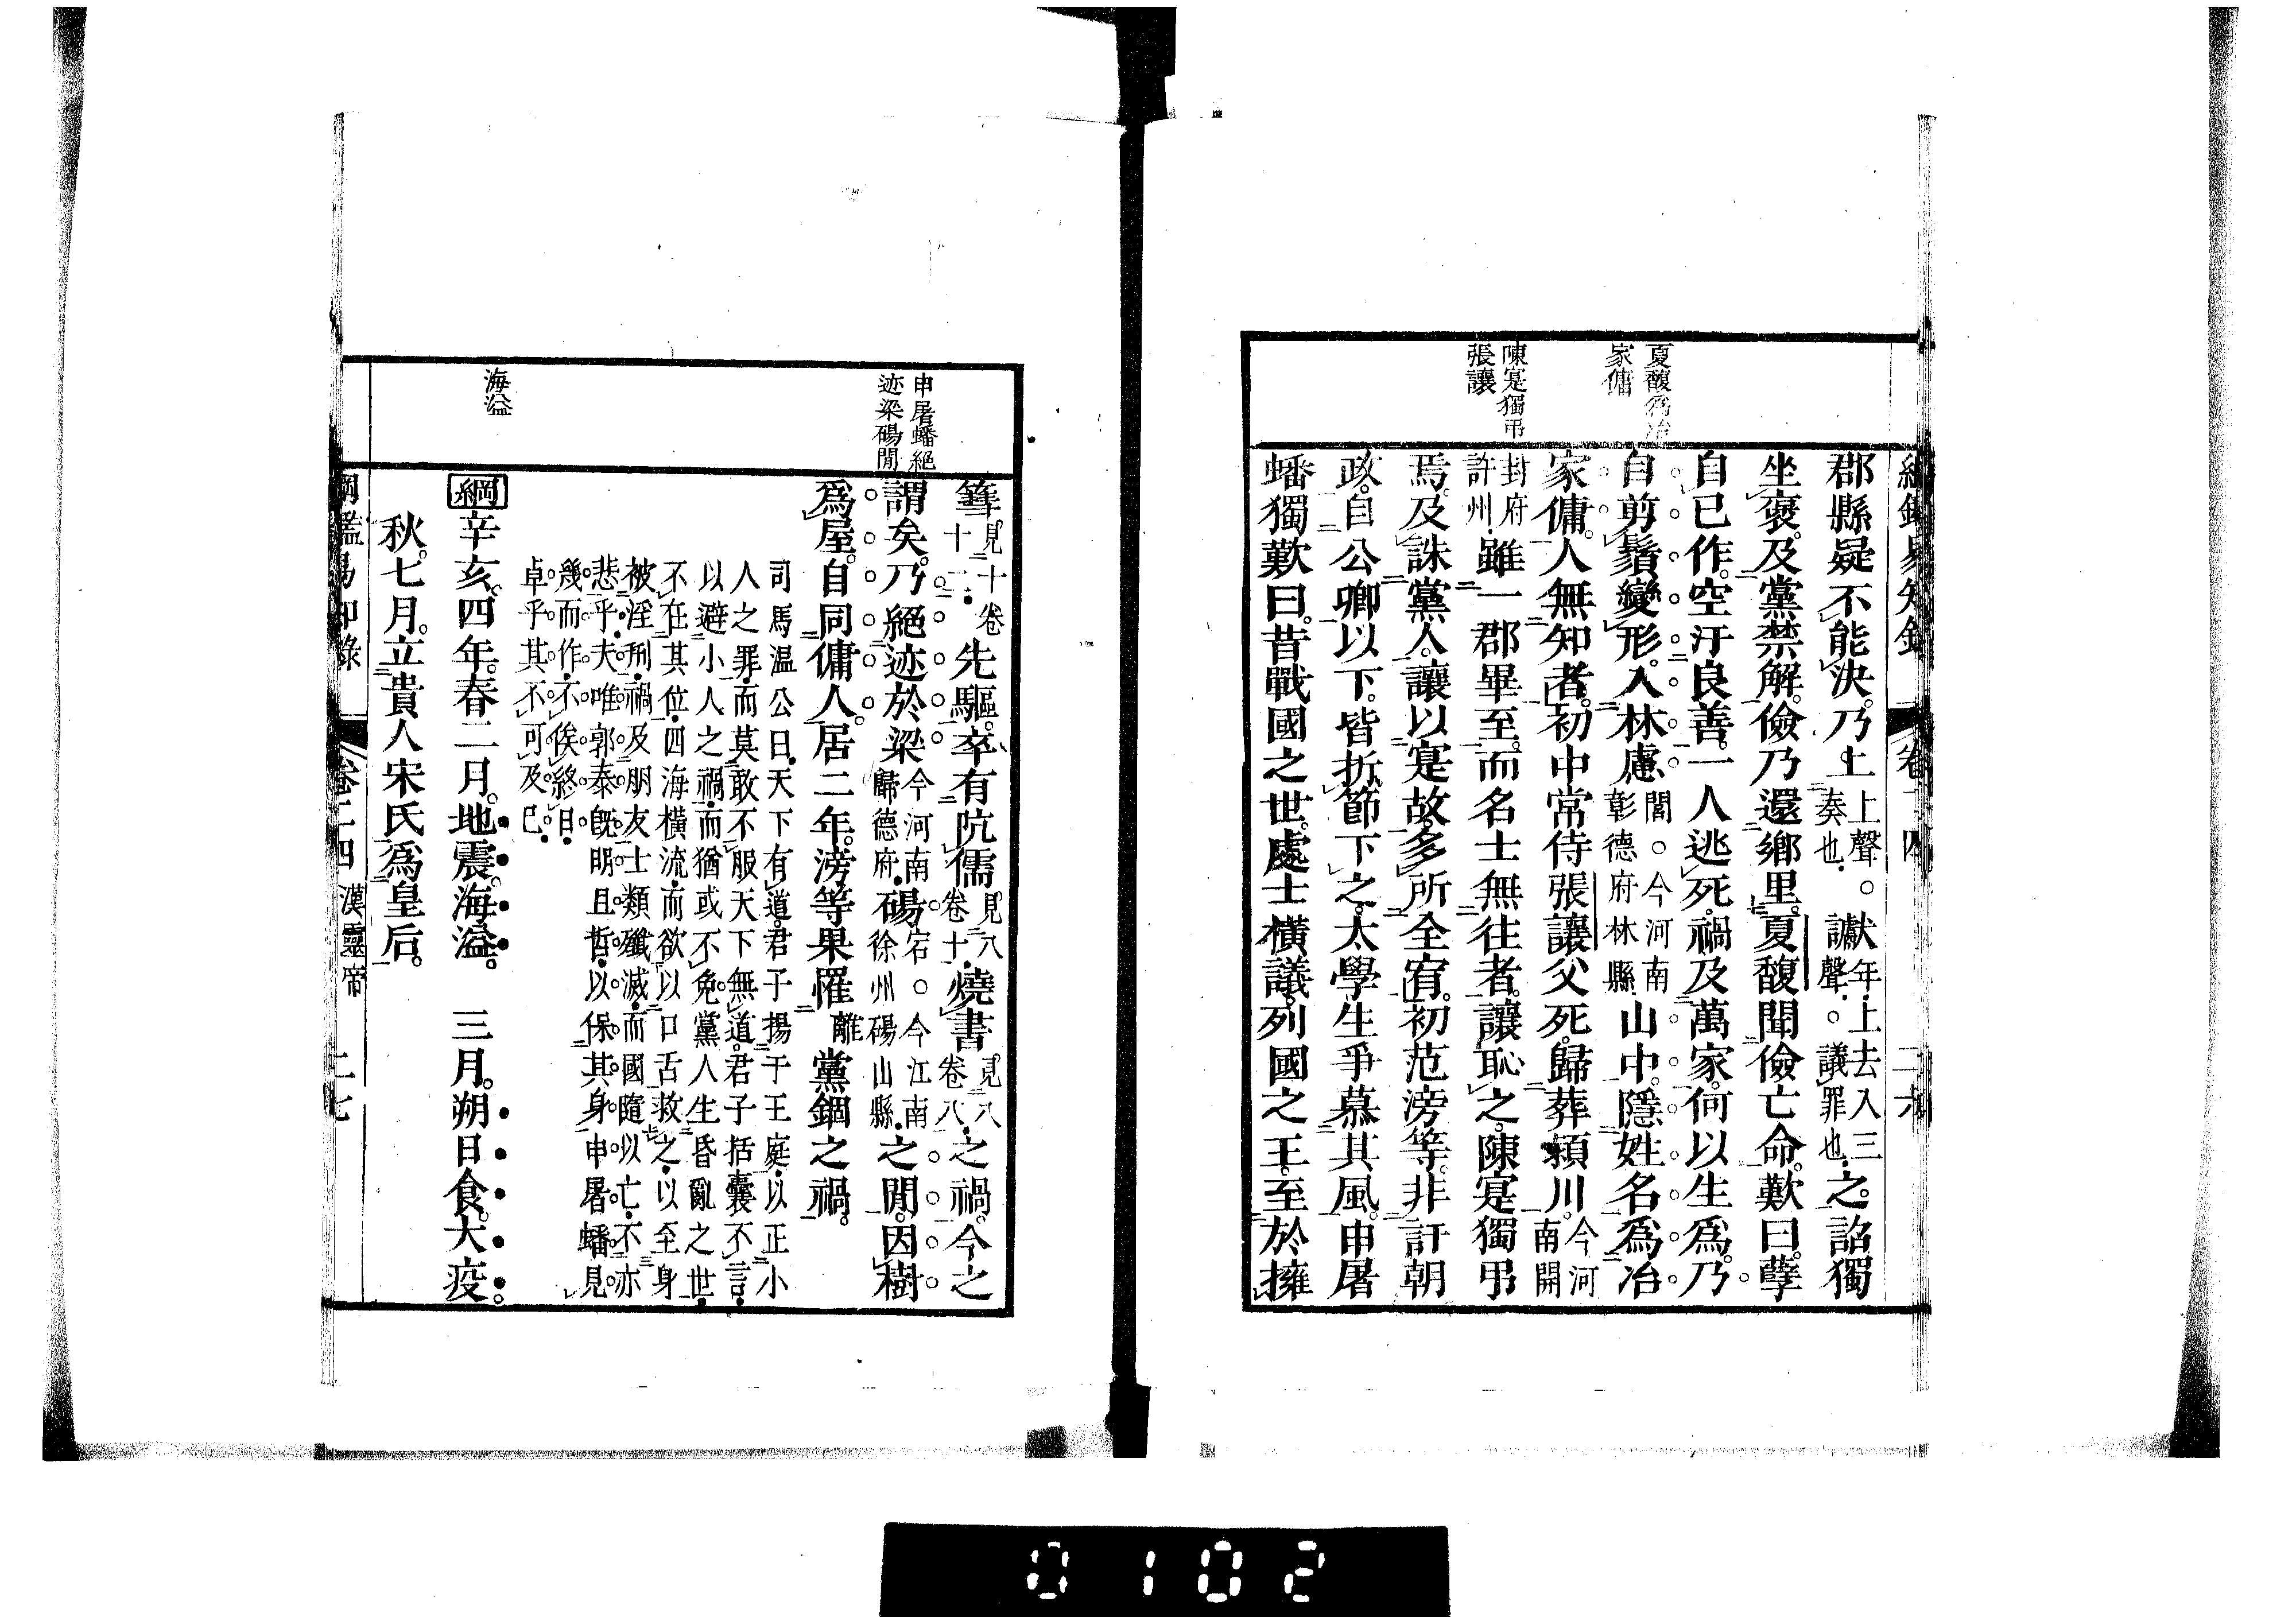 夏馥爲冶
家傭
陳寔獨弔
張讓
郡縣疑不能決。乃上上聲。奏也。讞年上去入三聲。議罪也。之。詔獨
坐褒。及黨禁解。儉乃還鄉里。夏馥聞儉亡命。歎曰。孽
自已作。空汙良善。一人逃死。禍及萬家。何以生爲。乃
自剪鬚變形。入林慮閭。今河南彰德府林縣。山中。隱姓名爲冶
家傭。人無知者。初中常侍張讓父死。歸葬頴川。今河南開
封府許州。雖一郡畢至。而名士無往者。讓恥之。陳寔獨弔
焉。及誅黨人。讓以寔故。多所全宥。初范滂等。非訐朝
政。自公卿以下。皆折節下之。太學生爭慕其風。申屠
蟠獨歎曰。昔戰國之世。處士橫議。列國之王。至於擁
申屠蟠絕
迹梁碭閒
海溢
篲見十卷十二。先驅。卒有吭儒見八卷十。燒書見八卷八。之禍。今之
謂矣。乃絕迹於梁今河南歸德府。碭宕。今江南徐州碭山縣。之閒。因樹
爲屋。自同傭人。居二年。滂等果罹離黨錮之禍。
司馬温公曰。天下有道。君子揚于王庭。以正小
人之罪。而莫敢不服。天下無道。君子括囊不言。
以避小人之禍。而猶或不免。黨人生昏亂之世。
不在其位。四海橫流。而欲以口舌救之。以至身
被淫刑。禍及朋友。士類殲滅。而國隨以亡。不亦
悲乎。夫唯郭泰旣明且哲。以保其身。申屠蟠見
幾而作。不俟終日。
卓乎其不可及已。
綱辛亥。四年。春二月。地震。海溢。 三月。朔日食。大疫。
秋。七月。立貴人宋氏爲皇后。
綱鑑易知錄 卷二四 漢靈帝 二七
0102